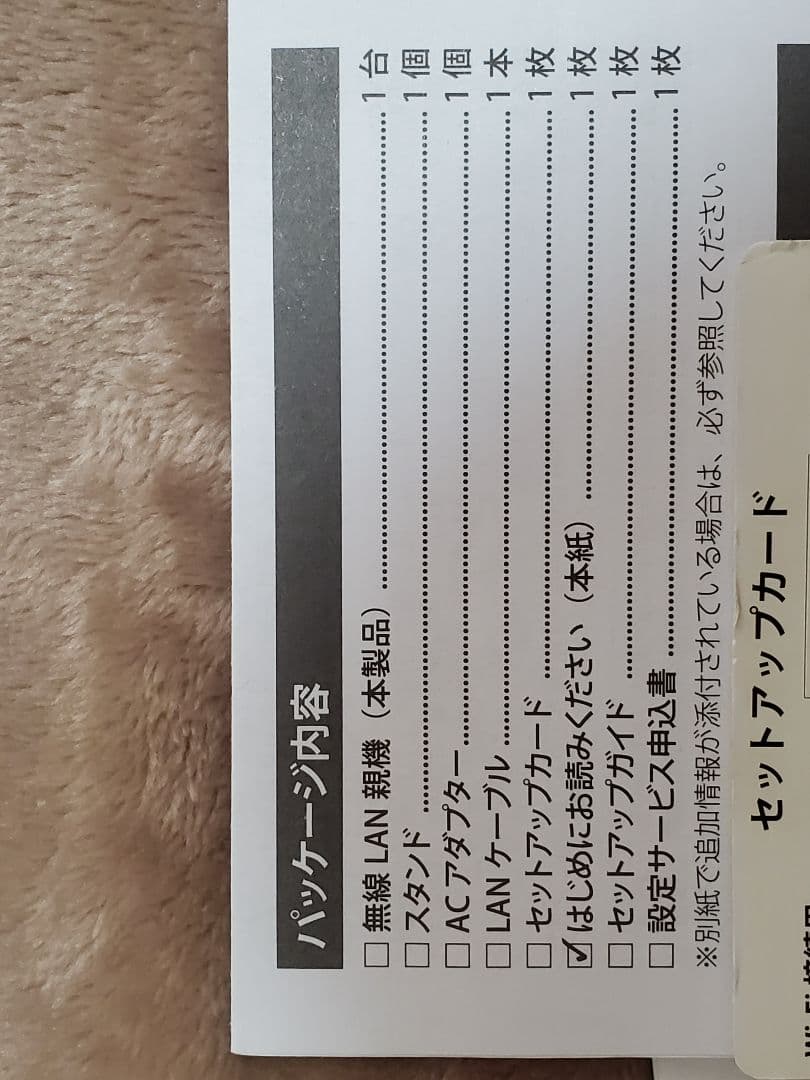 パッケージ内容
□ 無線 LAN 親機（本製品）……………………1 台
□ スタンド……………………1 個
□ AC アダプター……………………1 個
□ LAN ケーブル……………………1 本
□ セットアップカード……………………1 枚
☑ はじめにお読みください（本紙）……………………1 枚
□ セットアップガイド……………………1 枚
□ 設定サービス申込書……………………1 枚
※別紙で追加情報が添付されている場合は、必ず参照してください。
セットアップカード